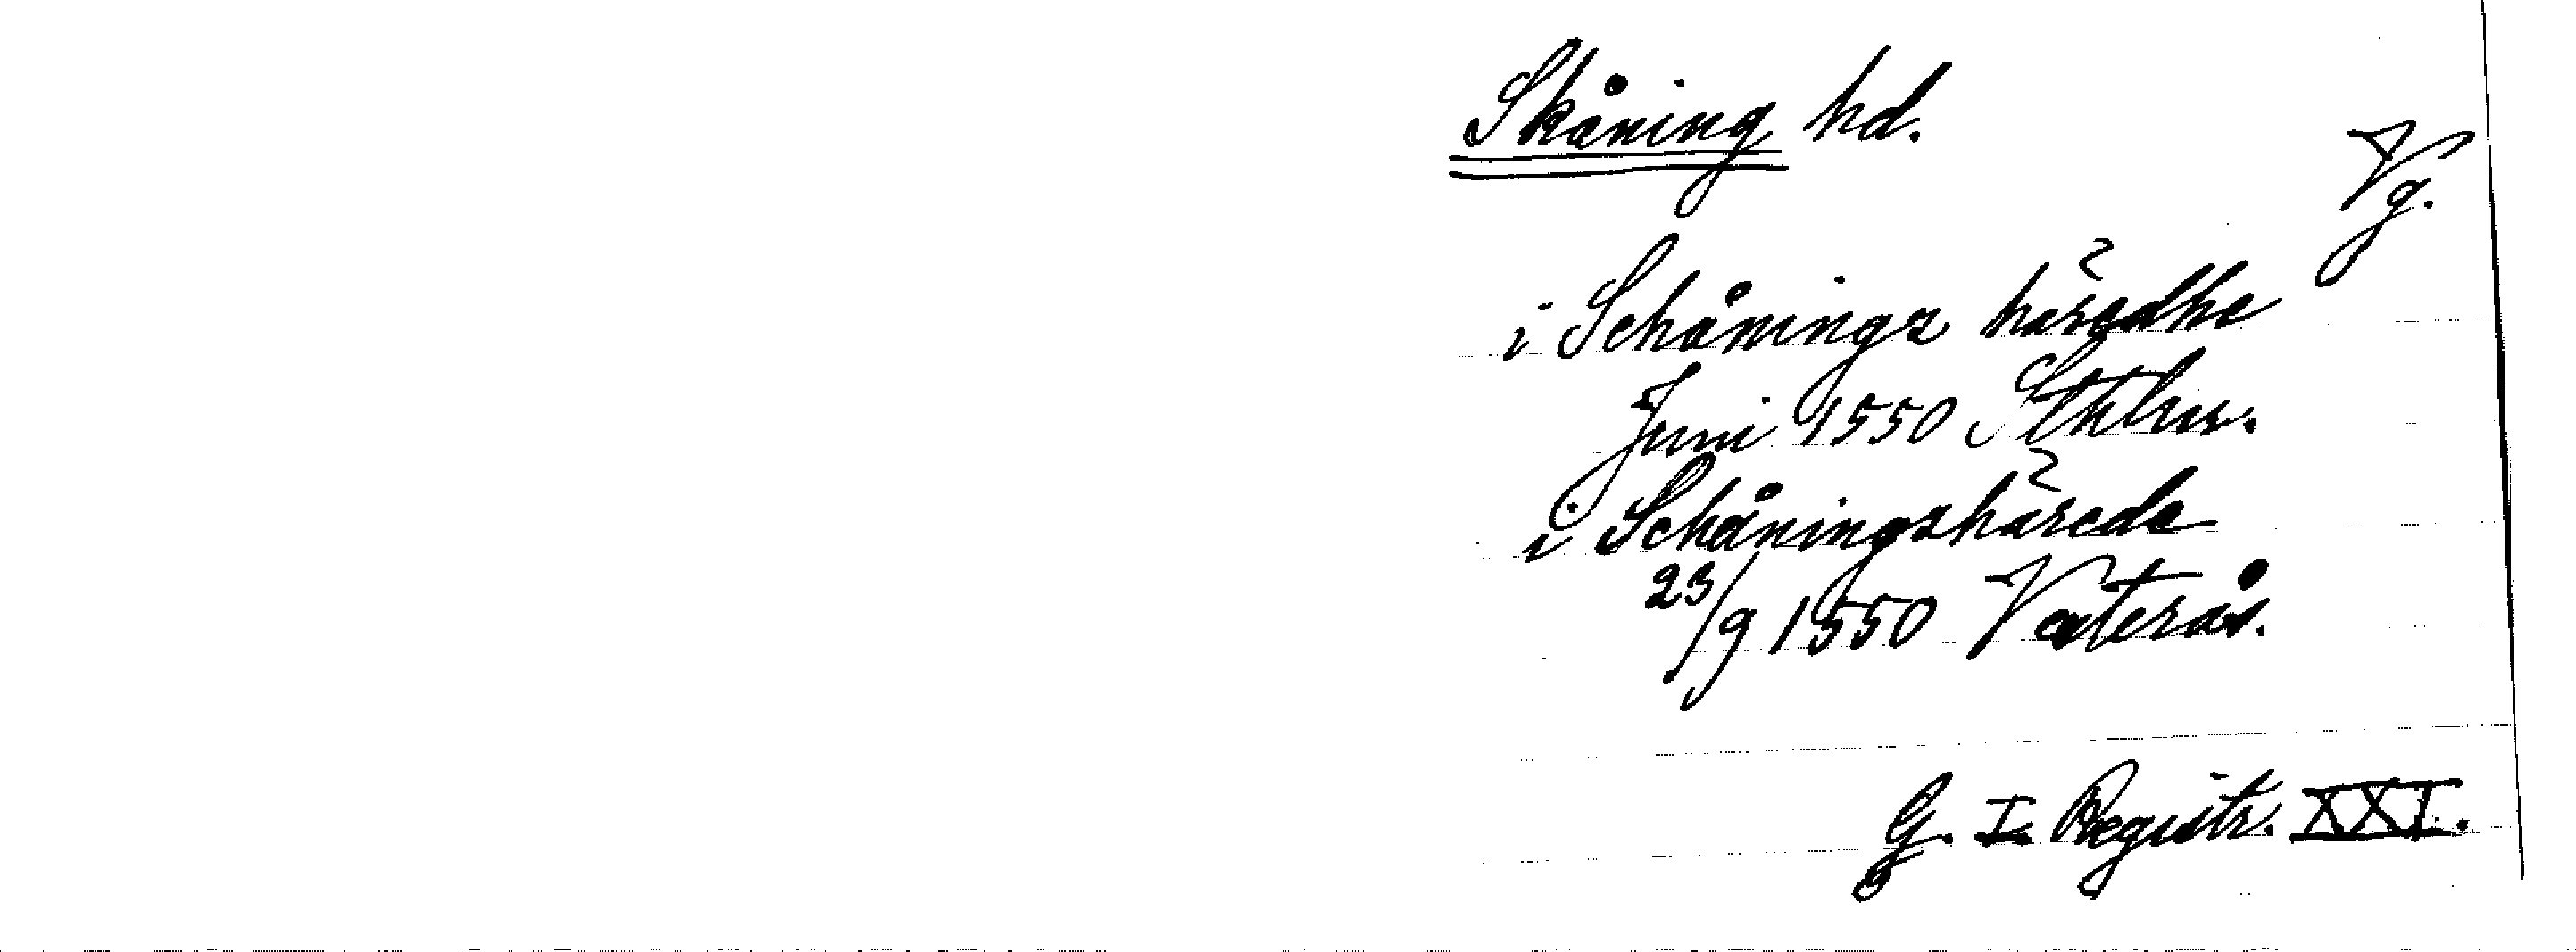 Skåning hd.
Vg.
i Schåningz häredhe
Juni 1550 Sthlm.
i Schåningzhärede
23/9 1550 Västerås.
G. I. Registr. XXI.